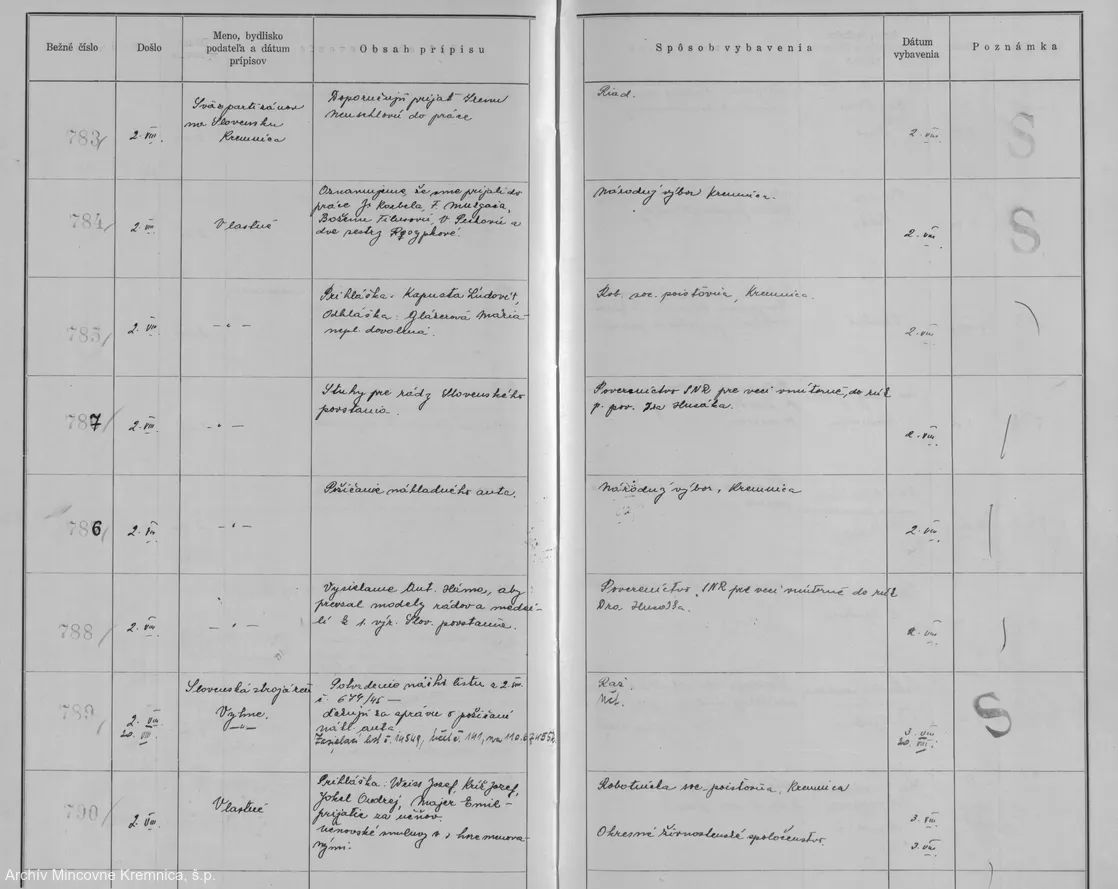 Bežné číslo
Došlo
Meno, bydlisko
podateľa a dátum
prípisov
Obsah prípisu
Spôsob vybavenia
Dátum
vybavenia
Poznámka
783/
2. VIII.
Sväz partizánov
na Slovensku
Kremnica
Doporučujú prijať Irenu
Neuschlovú do práce
Riad.
2. VIII.
S
784/
2. VIII.
Vlastné
Oznamujeme, že sme prijali do
práce J. Korbela, F. Mušgaša,
Boženu
dve sestry
Národný výbor Kremnica.
2. VIII.
S
785/
2. VIII.
- " -
Prihláška: Kapusta Ľudovít,
Odhláška: Glázerová Mária-
nepl. dovolená.
Rob. soc. poisťovňa, Kremnica.
2. VIII.
787/
2. VIII.
- " -
Stuhy pre rády Slovenského
povstania.
Povereníctvo SNR pre veci vnútorné, do rúk
p. pov. Dra Husáka.
2. VIII.
786
2. VIII.
- " -
Požičanie nákladného auta.
Národný výbor, Kremnica
2. VIII.
788/
2. VIII.
- " -
Vysielame Ant. Háma, aby
prevzal modely rádov a medai-
lí k 1. výr. Slov. povstania.
Povereníctvo SNR pre veci vnútorné do rúk
Dra Husáka.
2. VIII.
789/
2. VIII.
20. VIII.
Slovenská strojáreň
Vyhne.
- " -
Potvrdenie nášho listu z 2. VIII.
č. 679/45 —
ďakujú za správu o požičaní
nákl. auta
Zasielací list č. 14549, účet č. 141, na
3. VIII.
20. VIII.
S
790/
2. VIII.
Vlastné
Prihláška: Weiss Jozef, Kríž Jozef,
Jokel Ondrej, Majer Emil-
prijatie za učňov.
Učňovské smluvy s hore menova-
nými.
Robotnícka soc. poisťovňa, Kremnica
3. VIII.
Okresné živnostenské spoločenstvo.
3. VIII.
Archív Mincovne Kremnica, š.p.